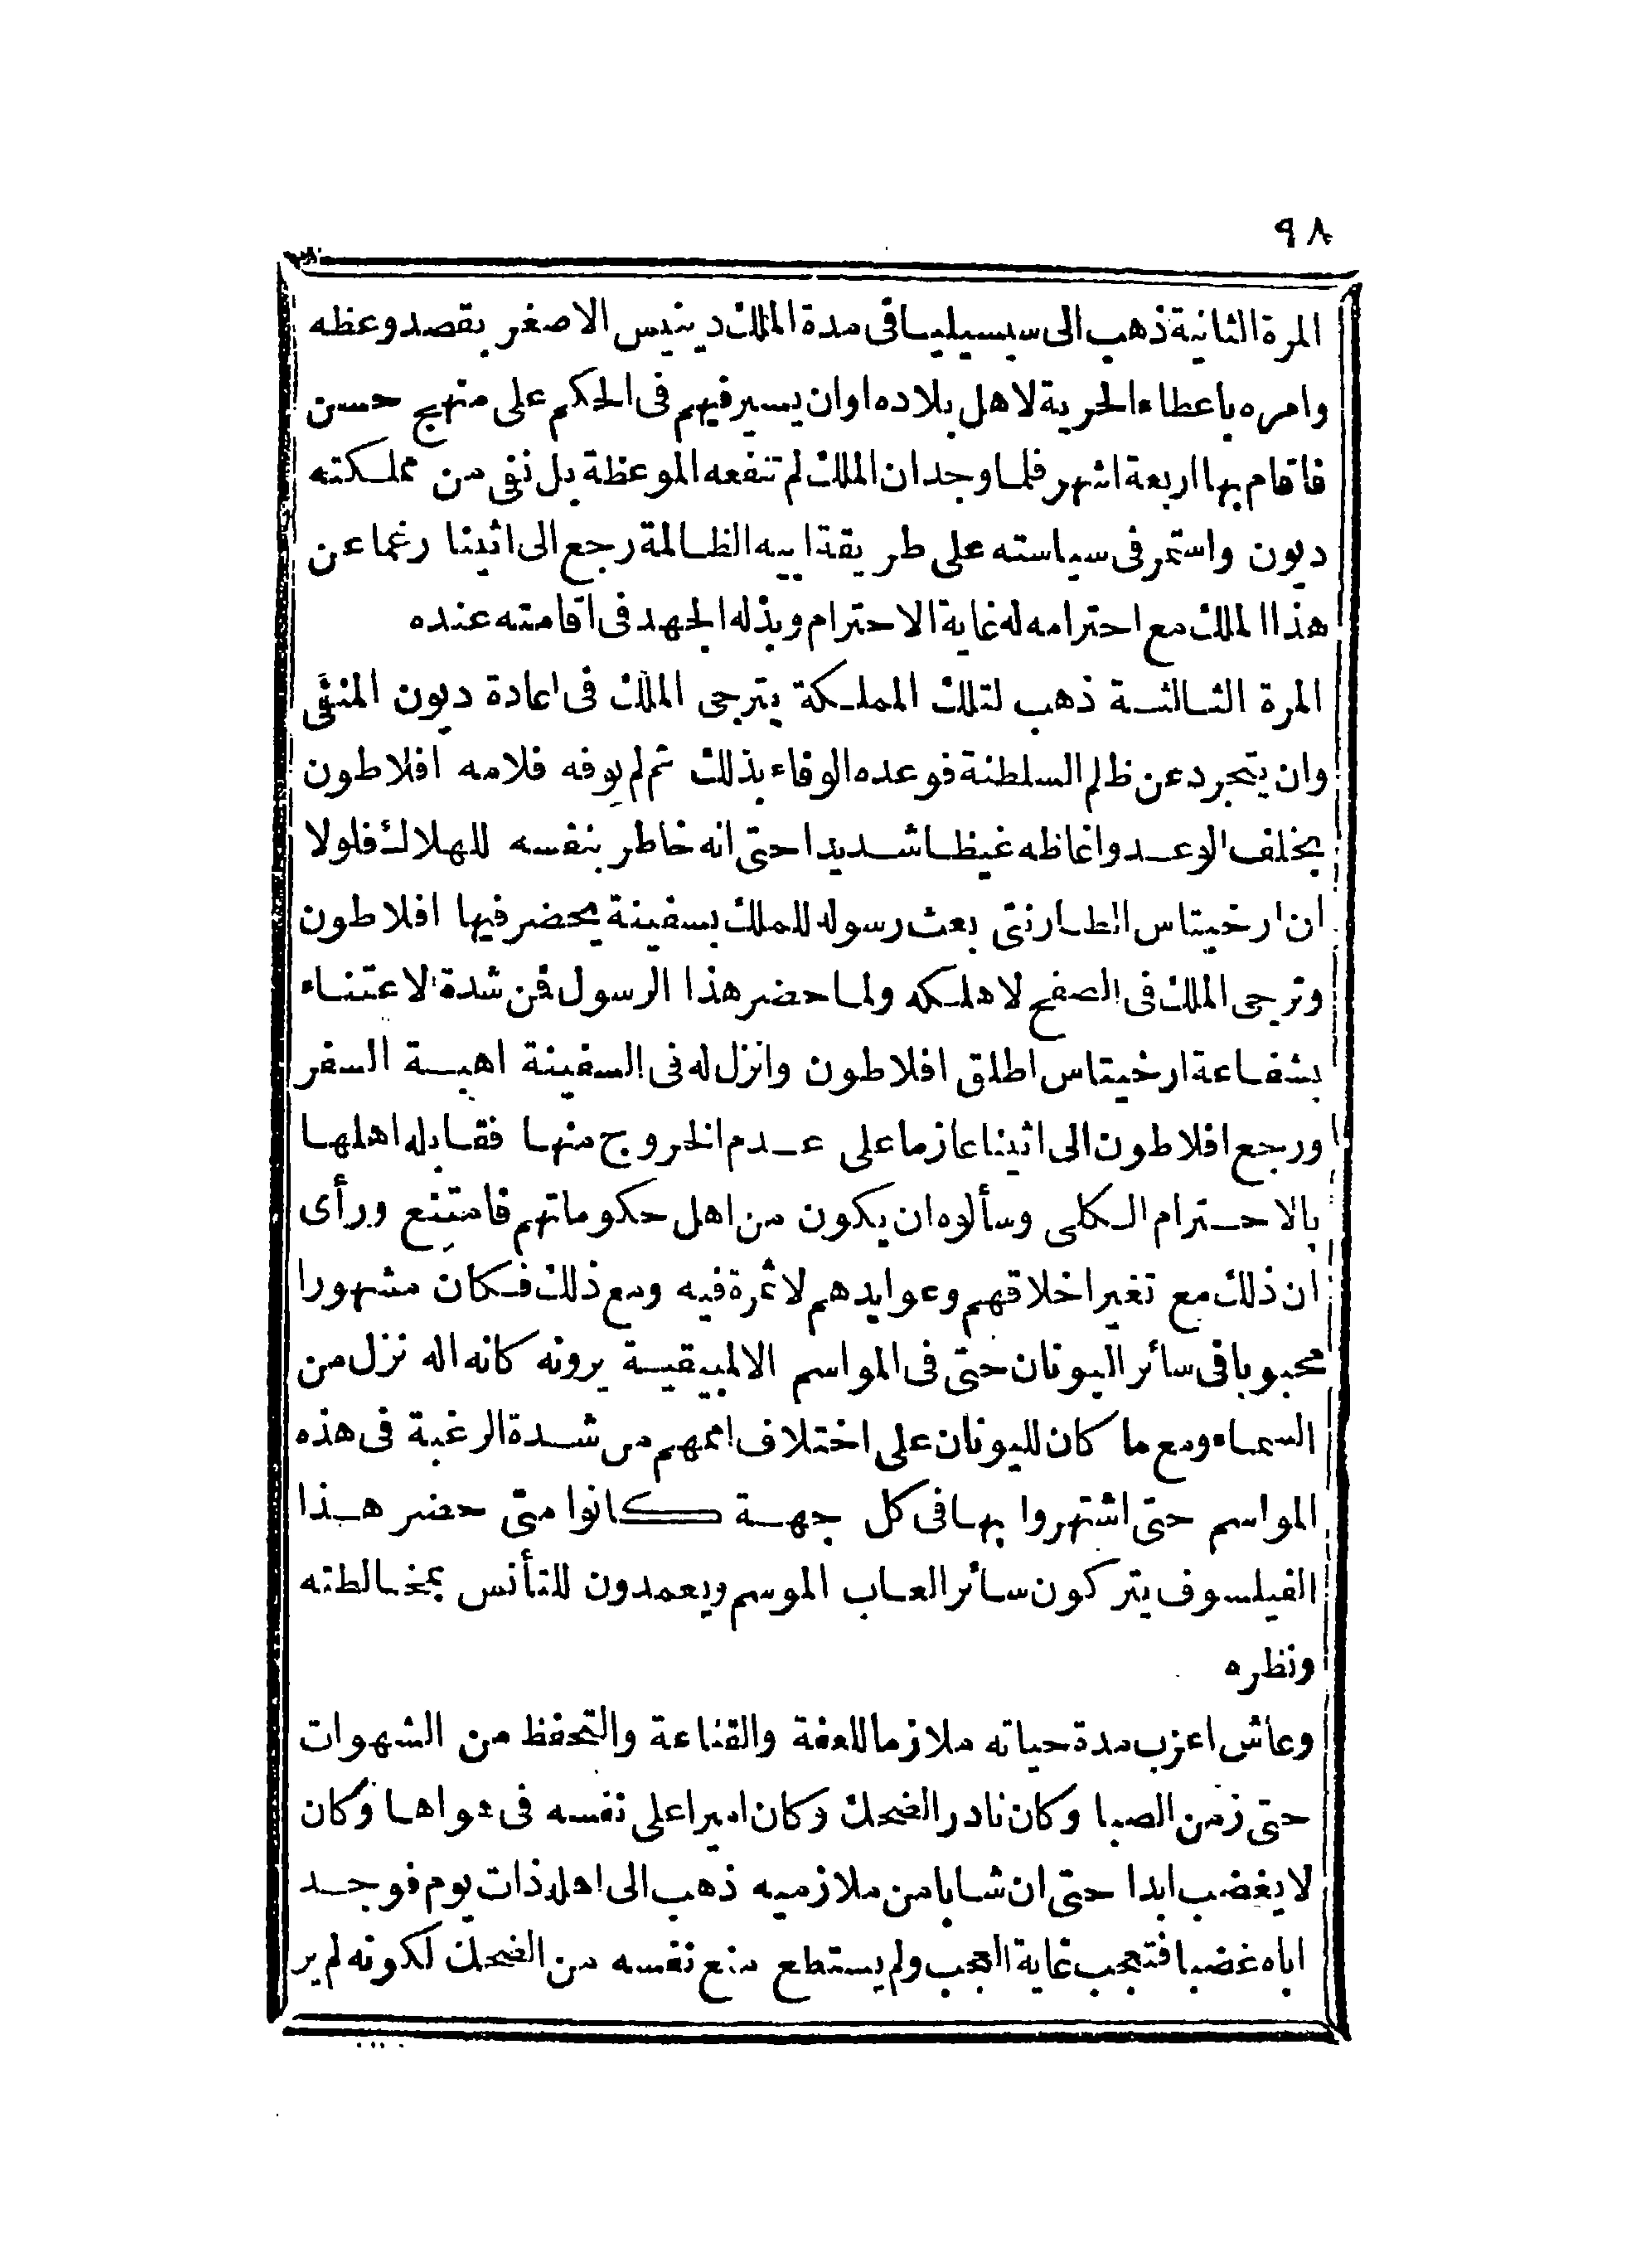 ٩٨
المرة الثانية ذهب الى سيسيليا فى مدة الملك دينيس الاصغر بقصد وعظه
وامره باعطاء الحرية لاهل بلاده او ان يسير فيهم فى الحكم على منهج حسن
فاقام بها اربعة اشهر فلما وجد ان الملك لم تنفعه الموعظة بل نفى من مملكته
ديون واستمر فى سياسته على طريقة ابيه الظالمة رجع الى اثينا رغما عن
هذا الملك مع احترامه له غاية الاحترام وبذله الجهد فى اقامته عنده
المرة الثالثة ذهب لتلك المملكة يترجى الملك فى اعادة ديون المنفى
وان يتجرد عن ظلم السلطنة فوعده الوفاء بذلك ثم لم يوفه فلامه افلاطون
بخلف الوعد واغاظه غيظا شديدا حتى انه خاطر بنفسه للهلاك فلولا
ان ارخيتاس الطارنتى بعث رسوله للملك بسفينة يحضر فيها افلاطون
وترجى الملك فى الصفح لاهلكه ولما حضر هذا الرسول فمن شدة الاعتناء
بشفاعة ارخيتاس اطلق افلاطون وانزل له فى السفينة اهبة السفر
ورجع افلاطون الى اثينا عازما على عدم الخروج منها فقابله اهلها
بالاحترام الكلى وسألوه ان يكون من اهل حكوماتهم فامتنع ورأى
ان ذلك مع تغير اخلاقهم وعوايدهم لا ثمرة فيه ومع ذلك فكان مشهورا
محبوبا فى سائر اليونان حتى فى المواسم الالمبيقية يرونه كانه اله نزل من
السماء ومع ما كان لليونان على اختلاف اممهم من شدة الرغبة فى هذه
المواسم حتى اشتهروا بها فى كل جهة كانوا متى حضر هذا
الفيلسوف يتركون سائر العاب الموسم ويعمدون للتأنس بمخالطته
ونظره
وعاش اعزب مدة حياته ملازما للعفة والقناعة والتحفظ من الشهوات
حتى زمن الصبا وكان نادر الضحك وكان اميرا على نفسه فى هواها وكان
لا يغضب ابدا حتى ان شابا من ملازميه ذهب الى اهله ذات يوم فوجد
اباه غضبا فتعجب غاية العجب ولم يستطع منع نفسه من الضحك لكونه لم ير